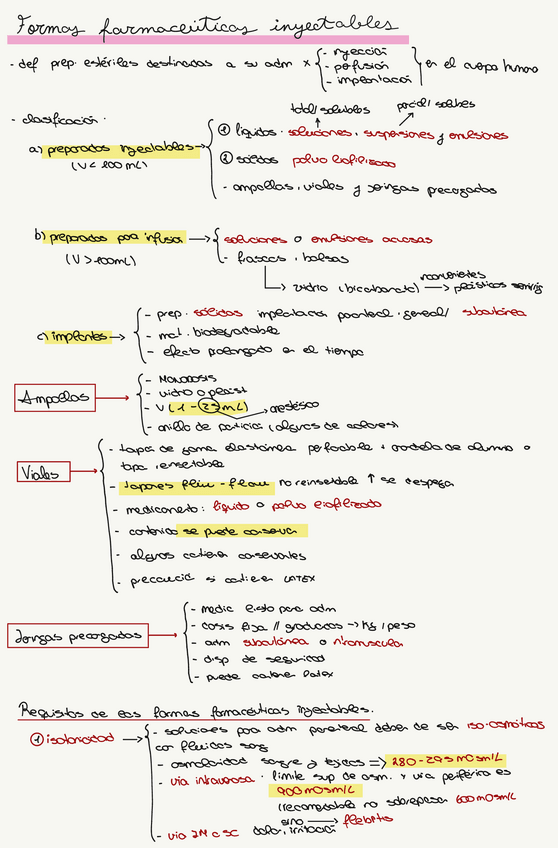 Formas farmaceúticas inyectables
- def prep. estériles destinadas a su adm x { - inyección
- perfusión
- implantación } en el cuerpo humano
total/ solubles
parcial/ solubles
- clasificación.
a) preparados inyectables → ① líquidos · soluciones, suspensiones y emulsiones
(V < 100 mL)
② sólidos polvo liofilizado
- ampollas, viales y jeringas precargadas
b) preparados para infusión → soluciones o emulsiones acuosas
(V > 100mL)
- frascos, bolsas
→ vidrio (bicarbonato) → plásticos
c) implantes → - prep. sólidas implantación parenteral · general/ subcutánea
- mat. biodegradable
- efecto prolongado en el tiempo
Ampollas → - Monodosis
- vidrio o plást
- V (1 - 25 mL) → anestésico
- anillo de (algunos de colores)
Viales → - tapa de goma elastómera perforable + de aluminio o
tapa insertable
- tapones flip-flow no reinsertable ↑ se despega
- medicamento: líquido o polvo liofilizado
- contenido se puede conservar
- algunos contienen conservantes
- precaución si contienen LATEX
Jeringas precargadas → - medic listo para adm
- dosis fija // graduadas → Kg/peso
- adm subcutánea o intramuscular
- disp de seguridad
- puede contener latex
Requisitos de las formas farmacéuticas inyectables.
① isotonicidad → - soluciones para adm parenteral deben de ser iso-osmóticas
con fluidos sang
- osmolaridad sangre y tejidos ⇒ 280 - 295 mOsm/L
- vía intravenosa · límite sup de osm. x vía periférica es
900 mOsm/L
(recomendable no sobrepasar 600 mOsm/L
sino → flebitis
- vía IM o SC dolor, irritación